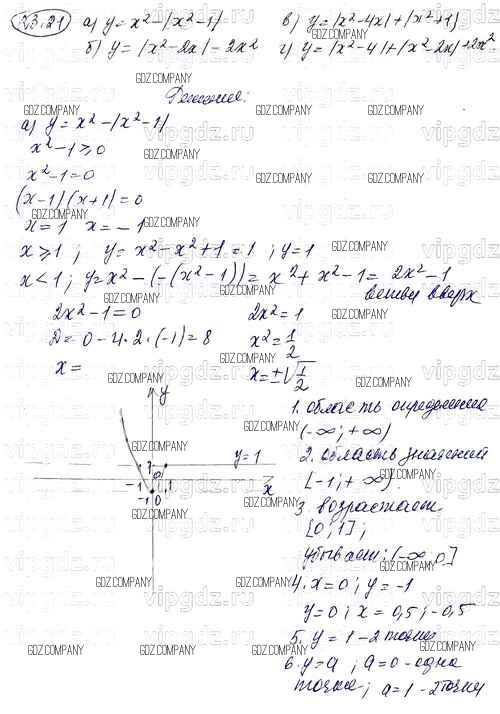 №3.21 а) y = x² - |x² - 1| в) y = |x² - 4x| + |x² + 1|
б) y = |x² - 2x| - 2x² г) y = |x² - 4| + |x² - 2x| + 2x²
Решение:
а) y = x² - |x² - 1|
x² - 1 ≥ 0
x² - 1 = 0
(x - 1)(x + 1) = 0
x = 1 x = - 1
x ≥ 1 ; y = x² - x² + 1 = 1 ; y = 1
x < 1 ; y = x² - (-(x² - 1)) = x² + x² - 1 = 2x² - 1
ветви вверх
2x² - 1 = 0 2x² = 1
D = 0 - 4 · 2 · (-1) = 8 x² = 1/2
x = x = ±√(1/2)
y
y = 1
1
-1 0 1
-1
x
1. область определения
(-∞; +∞)
2. область значений
[-1; +∞)
3. возрастает
[0; 1];
убывает: (-∞; 0]
4. x = 0; y = -1
y = 0; x = 0,5; -0,5
5. y = 1 - 2 точки
6. y = a; a = 0 - одна
точка; a = 1 - 2 точки
GDZ.COMPANY
vipgdz.ru